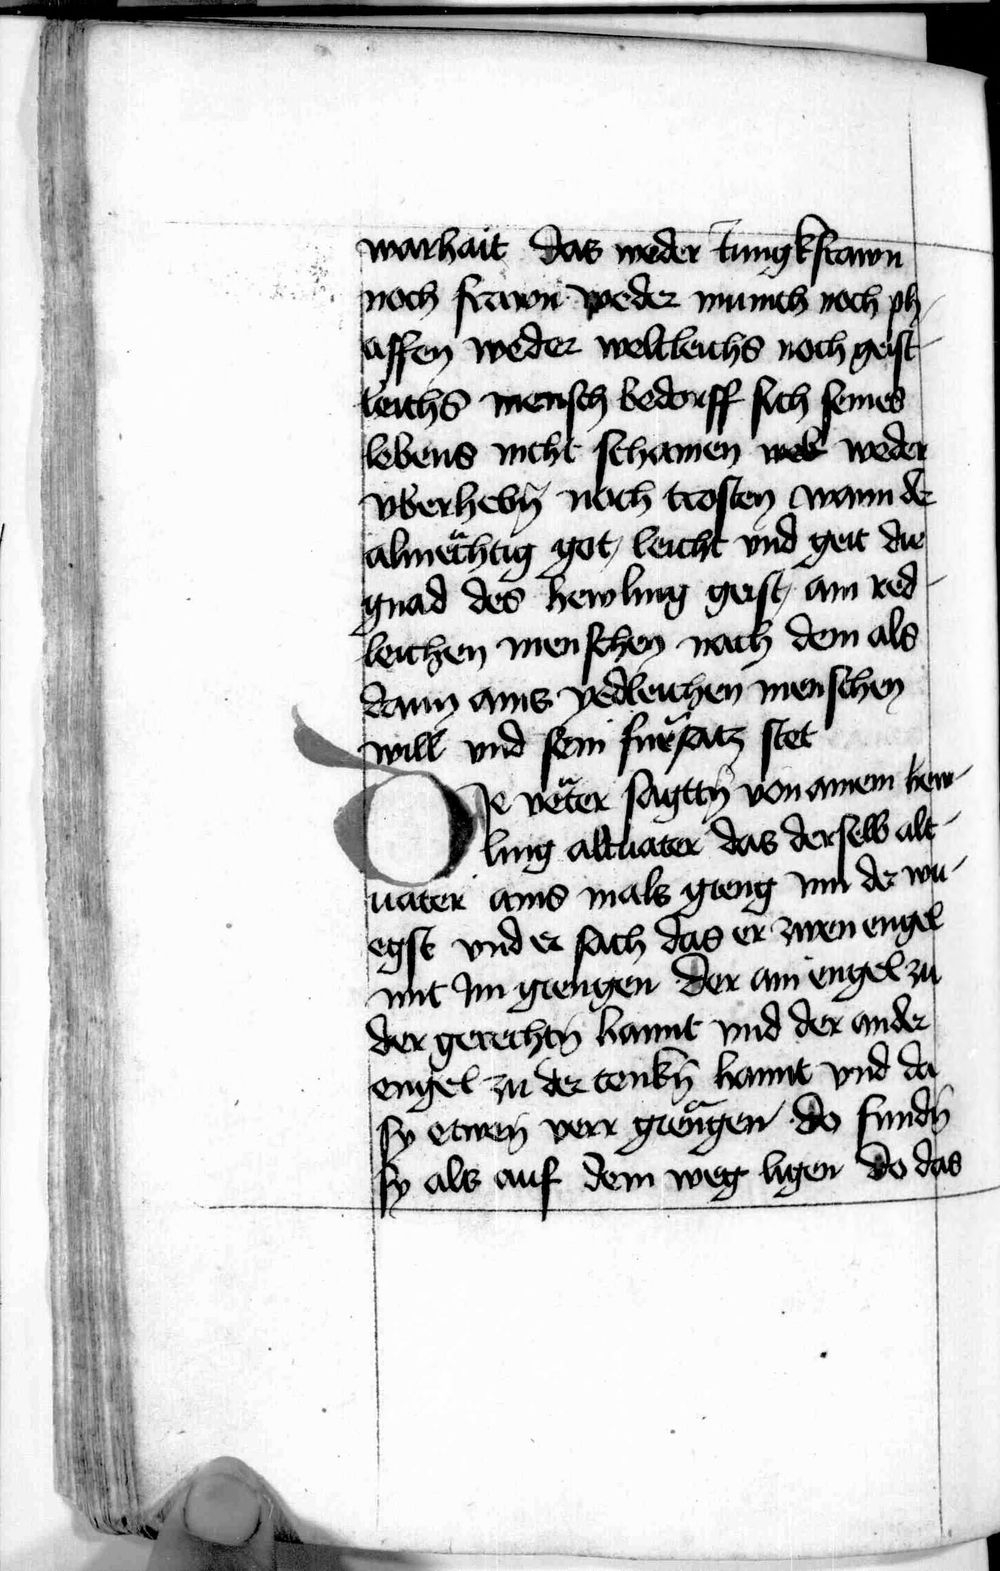 warhait das weder iungkfrawn
noch frawn weder munich noch ph
affen weder weltleichs noch geist
leichs mensch bedorff sich seines
lebens nicht schamen weder
vberhebn̄ noch trosten wann der
almëchtig got leicht vnd geit die
gnad des hewling geist aim red
leichen menschen nach dem als
dann ains yedleichen menschen
will vnd sein fürsatz stet
Die vëter sagttn̄ von ainem hew
ling altuater das derselb alt
uater ains mals gieng inn der wu
egst vnd er sach das er zwen engel
mit im giengen Der ain engel zu
der gerechtn̄ hannt vnd der ander
engel zu der tenkn̄ hannt vnd da
sy etwen verr giëngen do fundn̄
sy als auf dem weg ligen do das